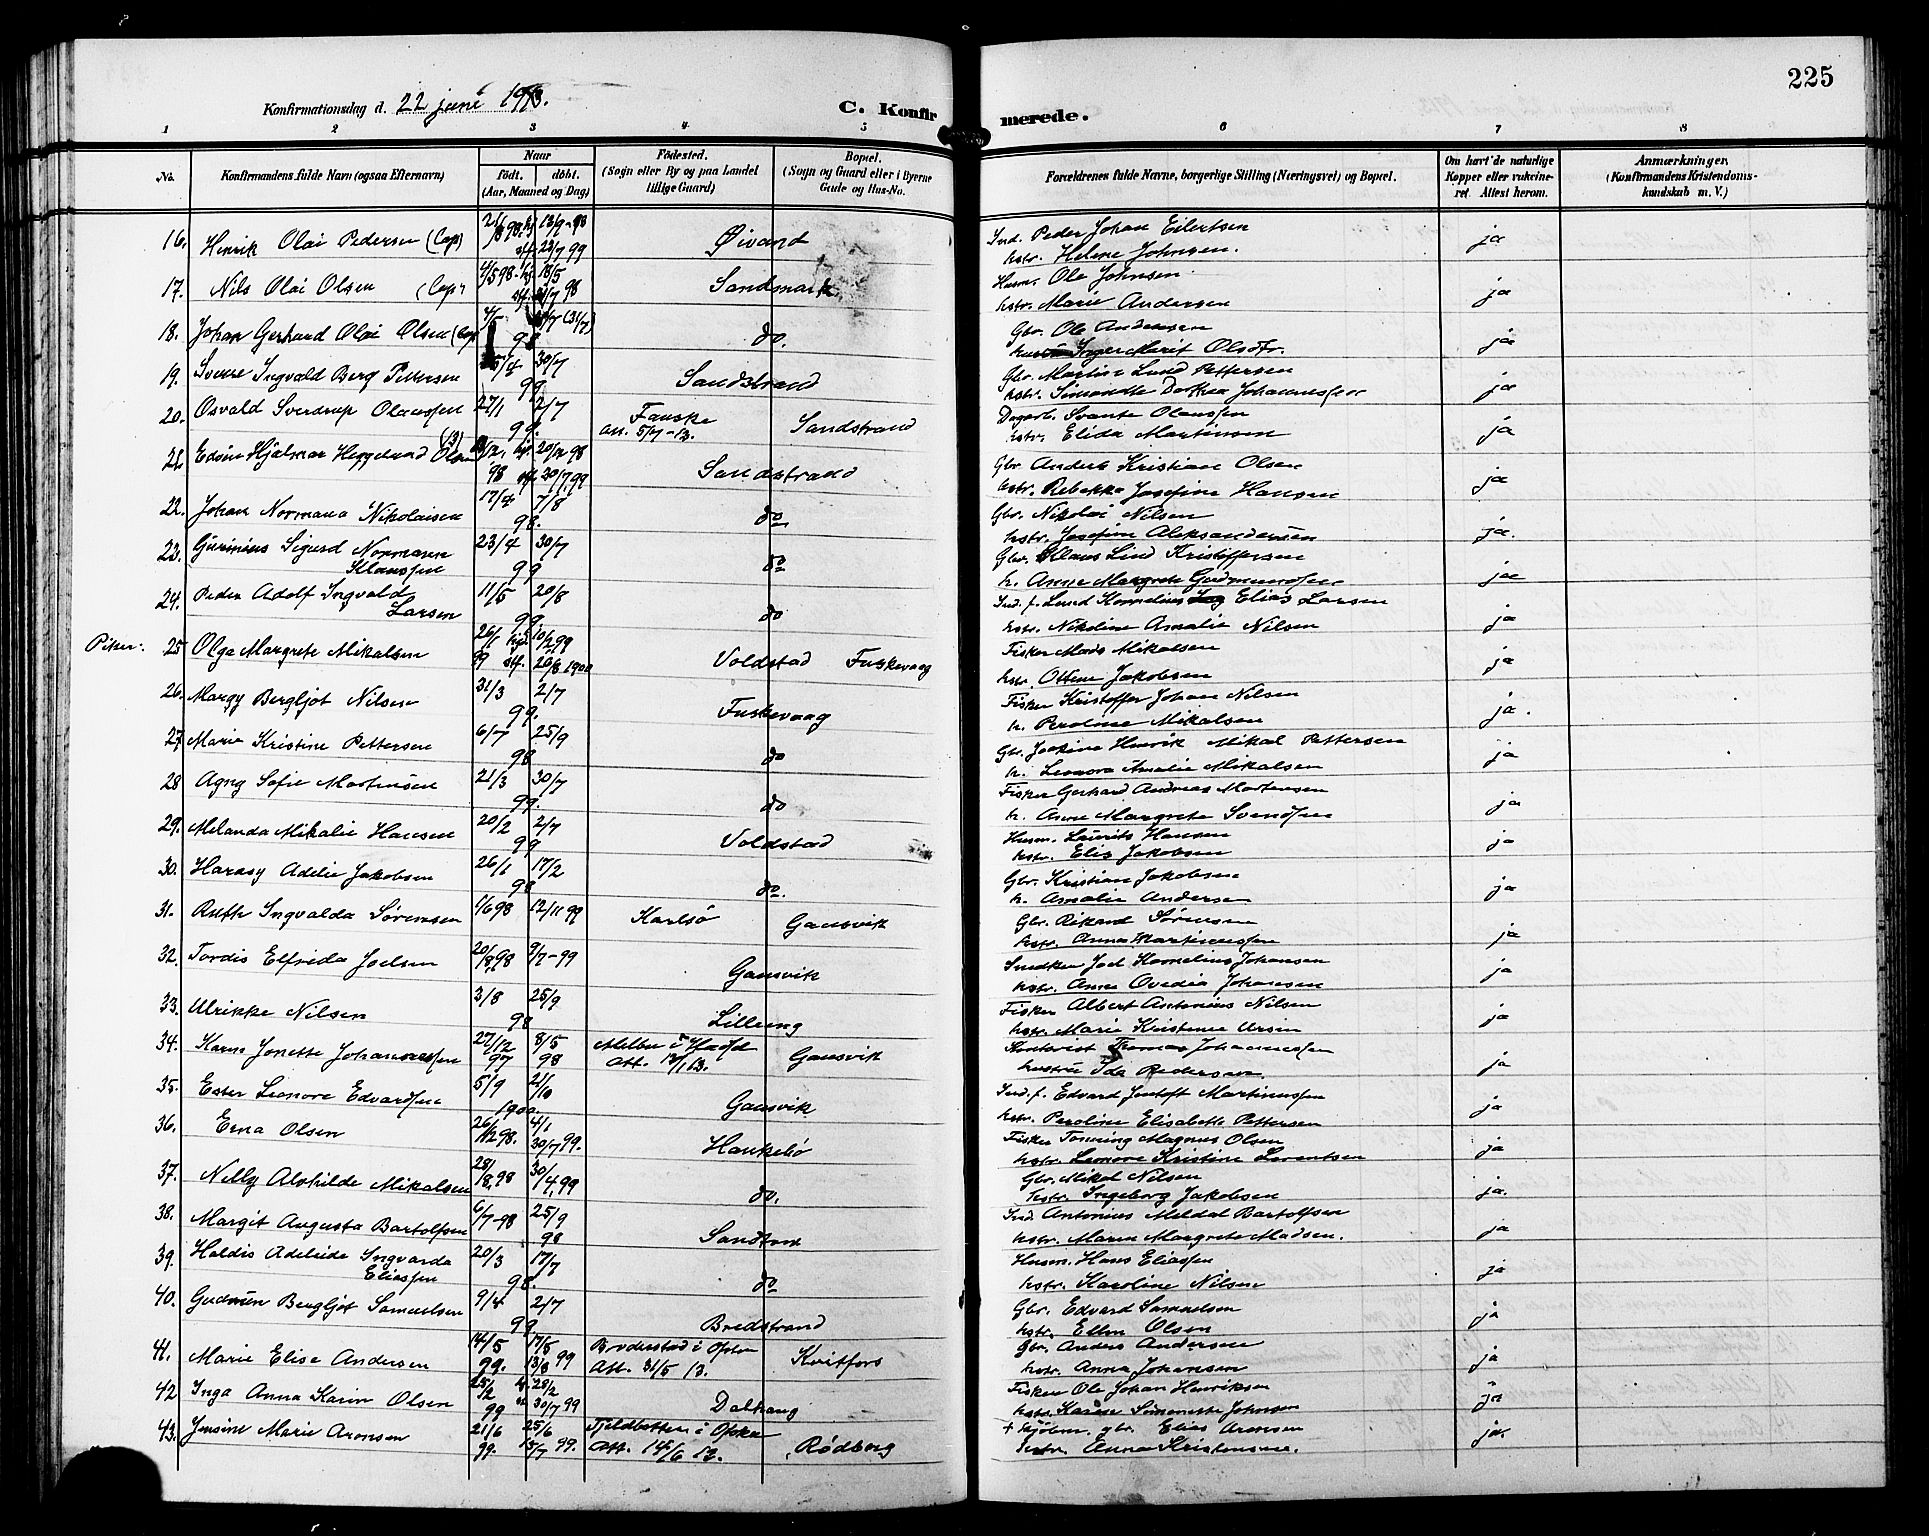 225
Konfirmationsdag d. 22 juni 1913.
C. Konfirmerede.
1 2 3 4 5 6 7 8
No. Konfirmandens fulde Navn (ogsaa Efternavn)
Naar födt. döbt. (Aar, Maaned og Dag)
Födested. (Sogn eller By og paa Landet tillige Gaard)
Bopæl. (Sogn og Gaard eller i Byerne Gade og Hus-No.
Forældrenes fulde Navne, borgerlige Stilling (Næringsvei) og Bopæl.
Om havt de naturlige Kopper eller vakcineret Attest herom.
Anmærkninger. (Konfirmandens Kristendomskundskab m. V.)
16. Henrik Olai Pedersen (Lap) 21/8 98 13/9-98 23/7 99 Øivand Ind. Peder Johan Eilertsen hstr. Helene Johnsen. ja
17. Nils Olai Olsen (Lap) 4/5 98 18/5 98 Sandmark Husm. Ole Johnsen hstr. Marie Andersen ja
18. Johan Gerhard Olai Olsen (Lap) 98 (31/7) do. Gbr. Ole Andersen Inger Marit Olsdtr. ja
19. Sverre Ingvald Berg Pettersen 30/7 99 Sandstrand Gbr. Martin Lund Pettersen hstr. Dorthea Johannessen ja
20. Osvald Sverdrup Olaussen 27/1 2/7 99. Fauske att. 5/7-13. Sandstrand Dagarb. Svante Olaussen hstr. Elida Martinsen ja
21. Edvin Hjalmar Heggelund Olsen 98 20/12 98 20/7 99 Sandstrand Gbr. Anders Kristian Olsen hstr. Rebekka Josefine Hansen ja
22. Johan Normann Nikolaisen 17/4 7/8 98. do Gbr. Nikolai Nilsen hstr. Josefine Aleksandersen ja.
23. Gurinius Sigurd Normann Klaussen 23/4 30/7 99 do Gbr. Klaus Lind Kristoffersen h. Anne Margrete Gudmundsen ja
24. Peder Adolf Ingvald Larsen 11/5 20/8 99. do Ind. f. Lund Kornelius Elias Larsen hstr. Nikoline Amalie Nilsen ja
Piker:
25 Olga Margrete Mikalsen 26/1 99 10/2 99 26/8 1900 Voldstad Fuskevaag Fisker Mads Mikalsen hstr. Ottine Jakobsen ja
26. Margy Bergljot Nilsen 31/3 2/7 99. Fuskevaag Fisker Kristoffer Johan Nilsen h. Peroline Mikalsen ja.
27. Marie Kristine Pettersen 6/7 25/9 98 do Gbr. Joakim Henrik Mikal Pettersen h. Leonora Amalie Mikalsen ja
28 Agny Sofie Mortensen 21/3 30/7 99. do Fisker Gerhard Andreas Mortensen h. Anne Margrete Svendsen ja
29. Melanda Mikalie Hansen 20/2 2/7 99 Voldstad Husm. Laurits Hansen hstr. Elis Jakobsen ja
30. Adelie Jakobsen 26/1 17/2 98 do. Gbr. Kristian Jakobsen h. Amalie Andersen ja
31. Ruth Ingvalda Sørensen 1/6 98 12/11 99 Karlsö Gausvik Gbr. Rikard Sørensen hstr. Anna Martinussen ja
32. Tordis Elfrida Joelsen 20/8 98 9/7-99 Gausvik Snedker Joel Kornelius Johansen hstr. Anna Ovedia Johansen ja
33. Ulrikke Nilsen 3/8 25/9 98 Lilleng Fisker Albert Antonius Nilsen hstr. Marie Kristense Ursin ja
34. Karen Jonette Johannessen 27/12 97 8/5 98 Melbu i Hadsel att. 13. Gausvik Kontorist Thomas Johannessen hustru Ida Pedersen. ja
35. Ester Leonore Edvardsen 5/9 21/10 1900. Gausvik Ind. f. Edvard Jentoft Martinussen hstr. Peroline Elisabeth Pettersen ja
36. Erna Olsen 26/12 98. 4/1 30/7 99. Haukebö Fisker Tonning Magnus Olsen hstr. Leonore Kristine Lorentsen ja
37. Nelly Alvhilde Mikalsen 28/8 98 30/4 99 do. Gbr. Mikal Nilsen hstr. Ingeborg Jakobsen ja.
38. Margit Augusta Bartolfsen 6/7-98 25/9 98 Sandtorv Ind. Antonius Meldal Bartolfsen hstr. Maren Margrete Madsen. ja
39. Haldis Adelaide Ingvarda Eliassen 20/3 17/7 98. do Husm. Hans Eliassen hstr. Karoline Nilsen ja
40. Gudrun Bergljot Samuelsen 9/4 2/7 99 Bredstrand Gbr. Edvard Samuelsen hstr. Ellen Olsen ja
41. Marie Elise Andersen 14/5 99. 17/5 13/8 99 i Ofoten att. 31/5 13. Kvitfors Gbr. Anders Andersen hstr. Anna Johansen ja
42 Inga Anna Karin Olsen 25/2 99 28/2 30/7 99 Dalhaug Fisker Ole Johan Henriksen hstr. Simonette Johnsen ja
43. Jensine Marie Aronsen 21/6 99. 25/6 15/7 99. Fjeldbotten i Ofoten att. 14/6 13. Rødberg gbr. Elias Aronsen hstr. Anna Kristensen. ja.